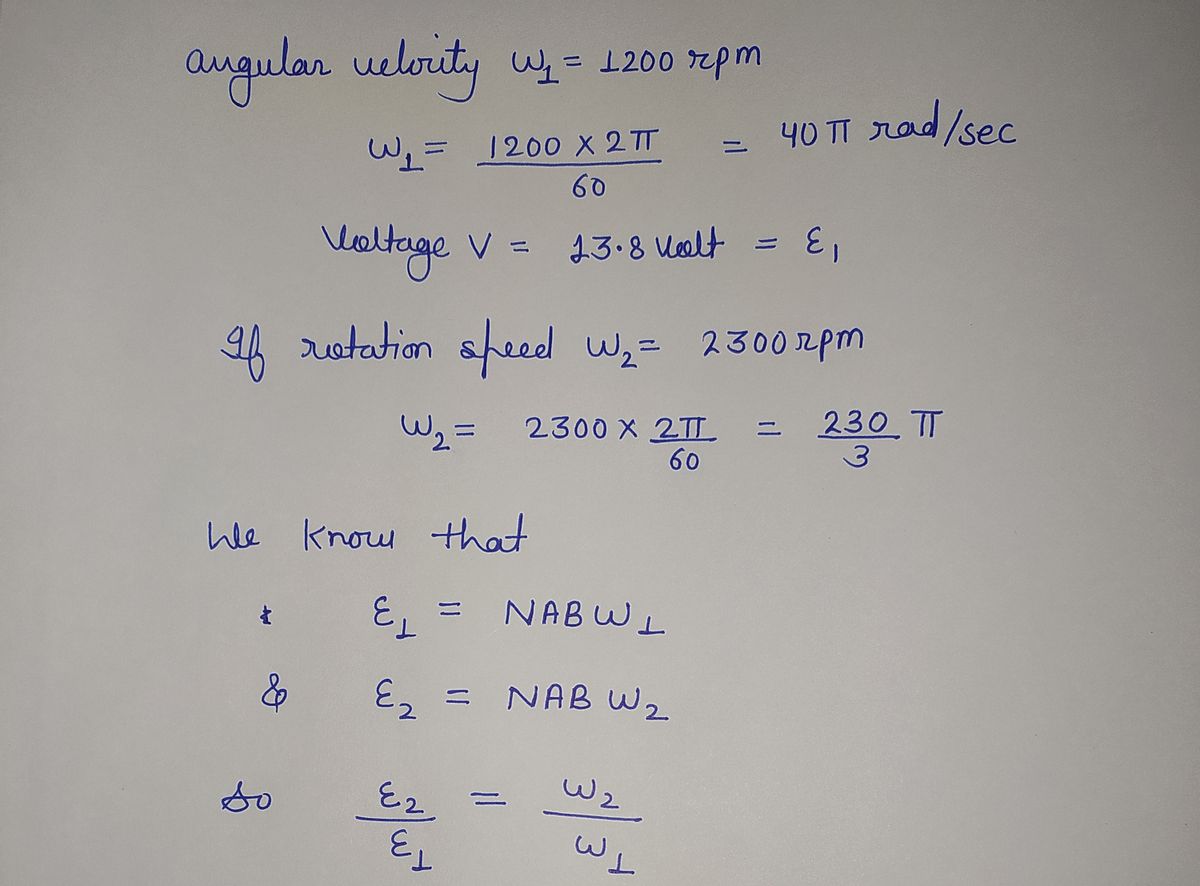 angular velocity ω₁ = 1200 rpm
ω₁ = 1200 × 2π / 60 = 40 π rad/sec
Voltage V = 13.8 Volt = ε₁
If rotation speed ω₂ = 2300 rpm
ω₂ = 2300 × 2π / 60 = 230 π / 3
We know that
ε₁ = NABω₁
& ε₂ = NAB ω₂
So ε₂ / ε₁ = ω₂ / ω₁